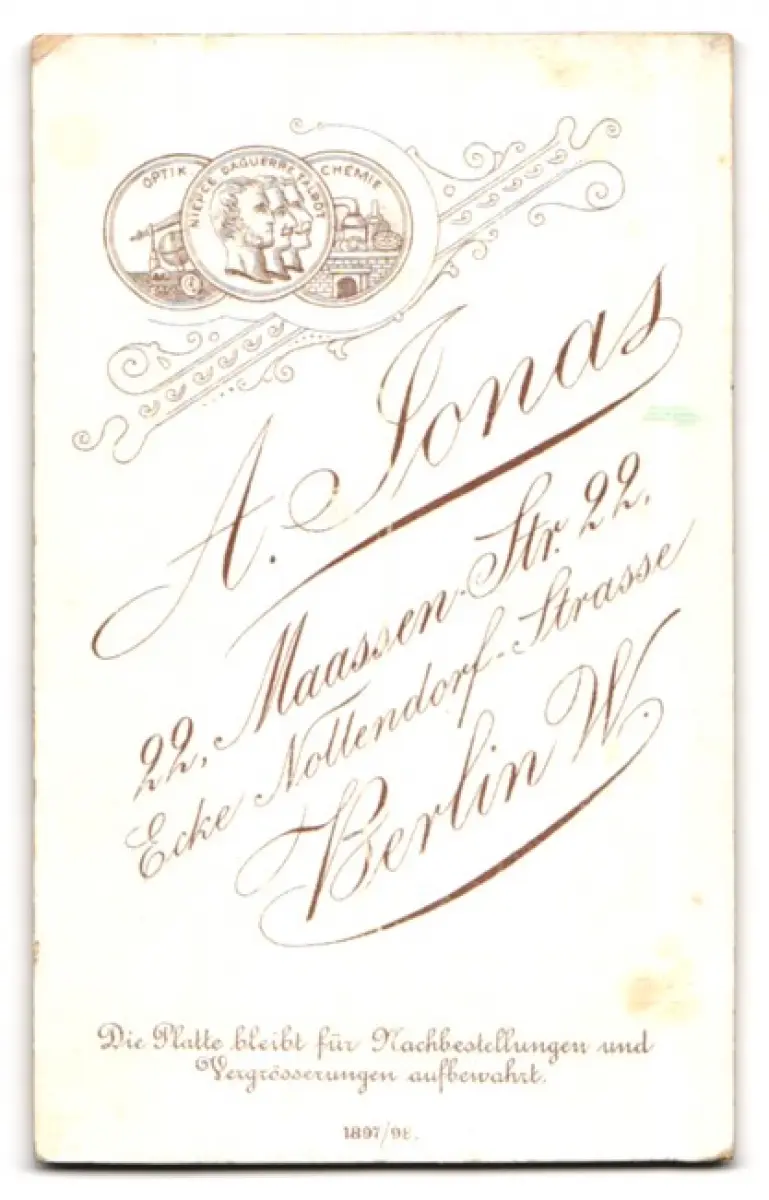 OPTIK.
NIEPCE DAGUERRE TALBOT
CHEMIE
A. Jonas
22, Maassen-Str. 22,
Ecke Nollendorf-Strasse
Berlin W.
Die Platte bleibt für Nachbestellungen und
Vergrösserungen aufbewahrt.
1897/98.